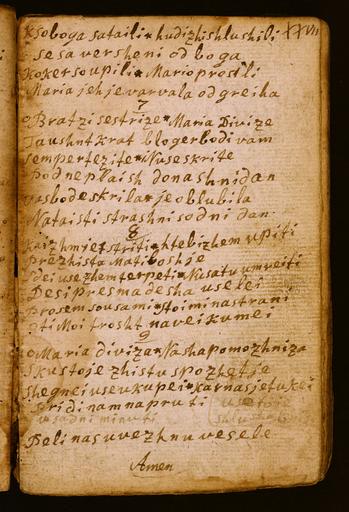 XXVII
Ksoboga sataili * hudizhishlushili
sesa versheni od boga
Kokersoupili * Mario prosili
Maria jeh je varvala od greiha
7
o Bratzi sestrize * Maria Divize
Taushnt krat blogerbodi vam
semperfezite * Nuseskrite
Pod ne plaish donashnidan
vas bode skrila * je oblubila
Na taisti strashni sodni dan
8
Kai zhmjet striti * htebi zhem vpiti
Prezhista Mati boshje
zhem terpeti * Nusatu umreiti
Desi pres madesha uselei
Prosem sousami * stoi mi na strani
Moi trosht naveikumei
9
o Maria diviza * Nasha pomozhniza
Skustoje zhistu spozhetje
Shegnei useukupei * Karnasjetukei
na pruti
usadni minuti
Pelinas uvezhnu vesele
Amen